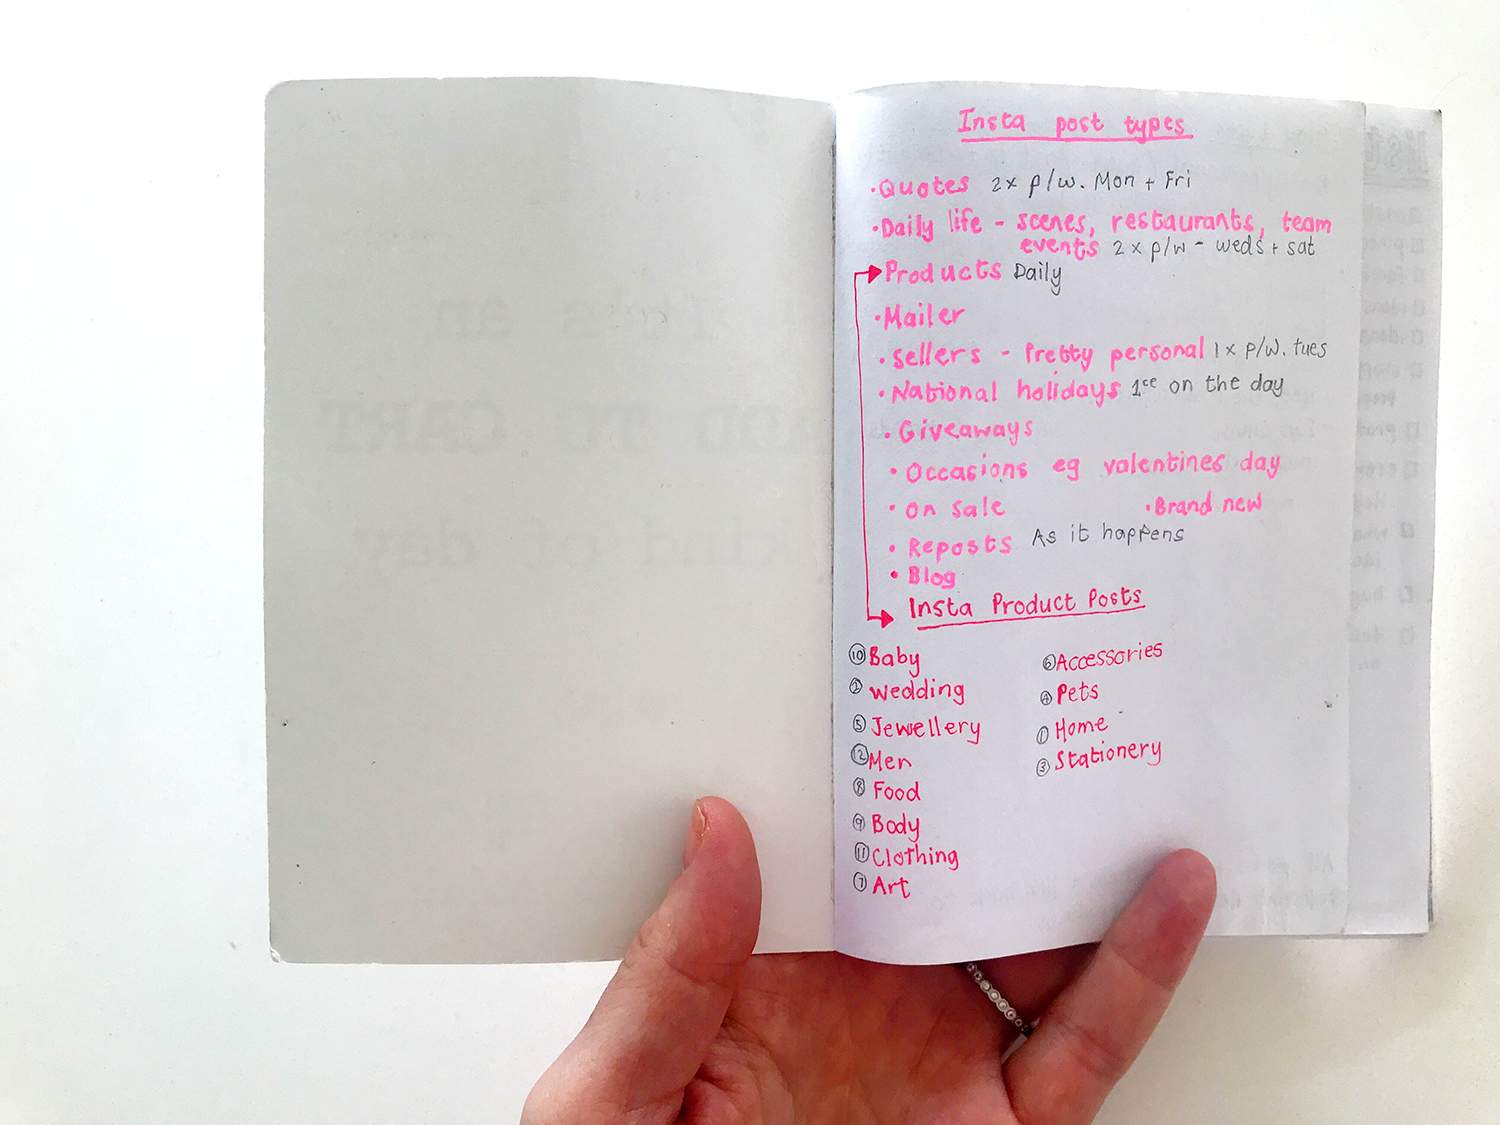 Insta post types
• Quotes 2x p/w. Mon + Fri
• Daily life - scenes, restaurants, team
events 2 x p/w - weds + sat
Products Daily
• Mailer
• Sellers - Pretty personal 1 x p/w. tues
• National holidays 1ce on the day
• Giveaways
• Occasions eg valentines day
• On sale • Brand new
• Reposts As it happens
• Blog
Insta Product Posts
⑩ Baby ⑥ Accessories
② wedding ④ Pets
⑤ Jewellery ① Home
⑫ Men ③ Stationery
⑧ Food
⑨ Body
⑪ Clothing
⑦ Art